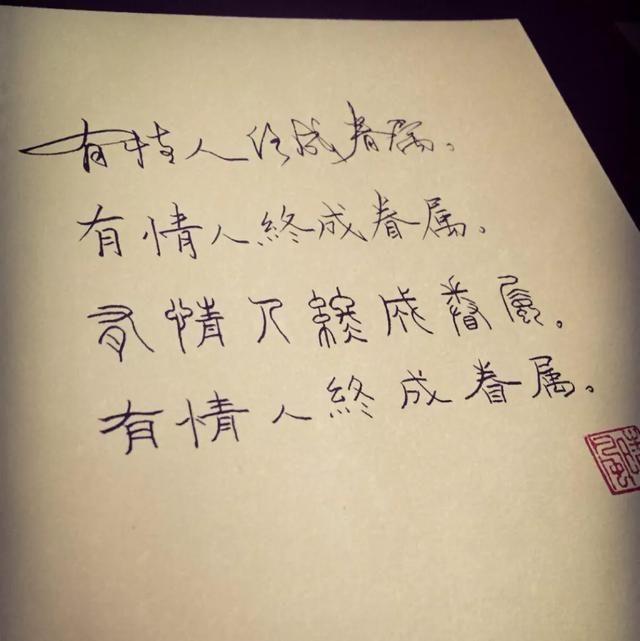 有情人终成眷属。
有情人終成眷属。
有情人終成眷属。
有情人終成眷属。